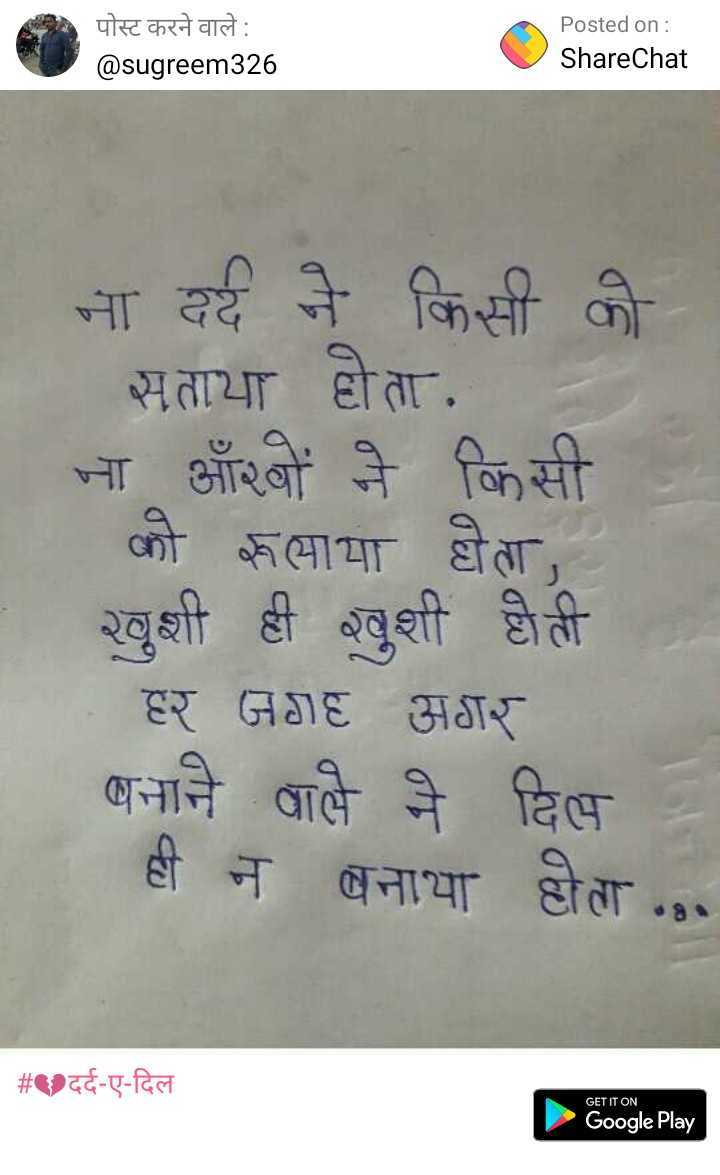 पोस्ट करने वाले :
@sugreem326
Posted on :
ShareChat
ना दर्द ने किसी को
सताया होता.
ना आँखों ने किसी
को रूलाया होता,
खुशी ही खुशी होती
हर जगह अगर
बनाने वाले ने दिल
ही न बनाया होता ...
#💔दर्द-ए-दिल
GET IT ON
Google Play